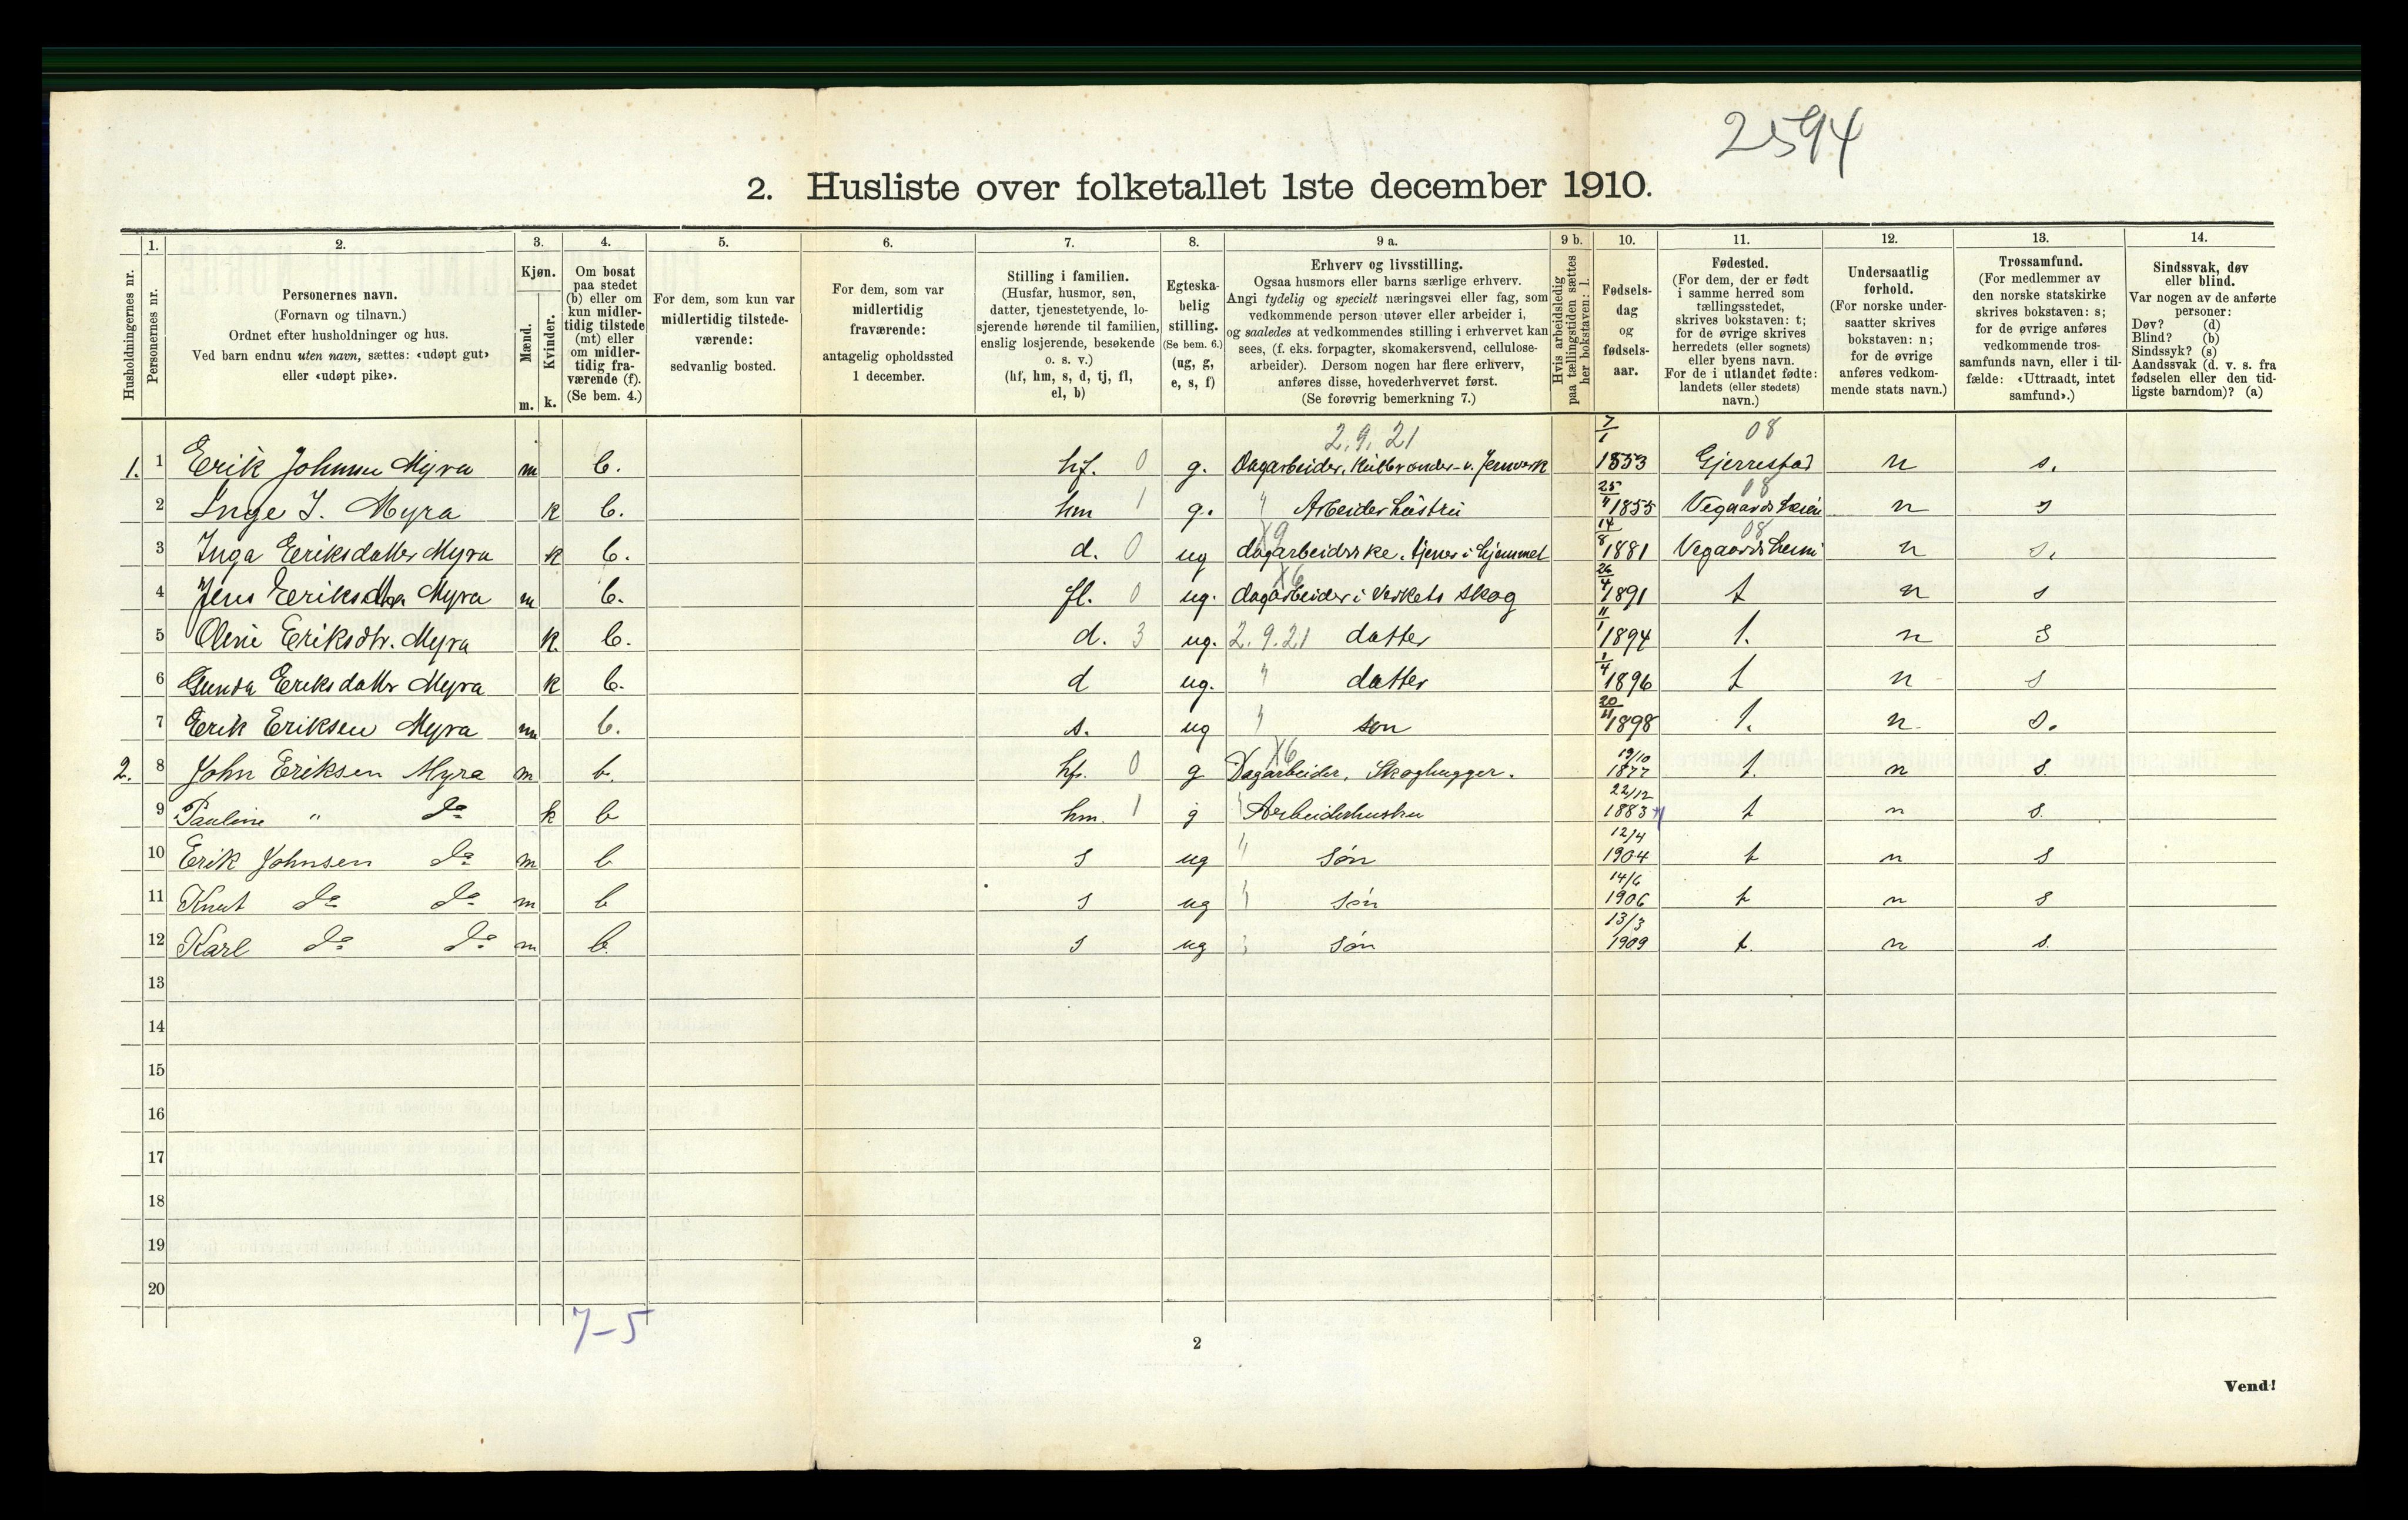 2594
2. Husliste over folketallet 1ste december 1910.
Husholdningernes nr.
1.
Personernes nr.
2.
Personernes navn.
(Fornavn og tilnavn.)
Ordnet efter husholdninger og hus.
Ved barn endnu uten navn, sættes: «udøpt gut»
eller «udøpt pike».
3.
Kjøn.
Mænd.
m.
Kvinder.
k.
4.
Om bosat
paa stedet
(b) eller om
kun midler-
tidig tilstede
(mt) eller
om midler-
tidig fra-
værende (f).
(Se bem. 4.)
5.
For dem, som kun var
midlertidig tilstede-
værende:
sedvanlig bosted.
6.
For dem, som var
midlertidig
fraværende:
antagelig opholdssted
1 december.
7.
Stilling i familien.
(Husfar, husmor, søn,
datter, tjenestetyende, lo-
sjerende hørende til familien,
enslig losjerende, besøkende
o. s. v.)
(hf, hm, s, d, tj, fl,
el, b)
8.
Egteska-
belig
stilling.
(Se bem. 6.)
(ug, g,
e, s, f)
9 a.
Erhverv og livsstilling.
Ogsaa husmors eller barns særlige erhverv.
Angi tydelig og specielt næringsvei eller fag, som
vedkommende person utøver eller arbeider i,
og saaledes at vedkommendes stilling i erhvervet kan
sees, (f. eks. forpagter, skomakersvend, cellulose-
arbeider). Dersom nogen har flere erhverv,
anføres disse, hovederhvervet først.
(Se forøvrig bemerkning 7.)
9 b.
Hvis arbeidsledig
paa tællingstiden sættes
her bokstaven: l.
10.
Fødsels-
dag
og
fødsels-
aar.
11.
Fødested.
(For dem, der er født
i samme herred som
tællingsstedet,
skrives bokstaven: t;
for de øvrige skrives
herredets (eller sognets)
eller byens navn.
For de i utlandet fødte:
landets (eller stedets)
navn.)
12.
Undersaatlig
forhold.
(For norske under-
saatter skrives
bokstaven: n;
for de øvrige
anføres vedkom-
mende stats navn.)
13.
Trossamfund.
(For medlemmer av
den norske statskirke
skrives bokstaven: s;
for de øvrige anføres
vedkommende tros-
samfunds navn, eller i til-
fælde: «Uttraadt, intet
samfund».)
14.
Sindssvak, døv
eller blind.
Var nogen av de anførte
personer:
Døv? (d)
Blind? (b)
Sindssyk? (s)
Aandssvak (d. v. s. fra
fødselen eller den tid-
ligste barndom)? (a)
2.9.21 7/1 08
1. 1 Erik Johnsen Myra m b. hf. 0 g. Dagarbeider, v. Jernverk 1853 Gjerrestad n s.
2 Inge J. Myra k b. hm 1 g. " Arbeiderhustru 25/11 1855 08 n s
3 Inga Eriksdatter Myra k b. d. 0 ug X9 dagarbeiderske, tjener i hjemmet 14/8 1881 08 n s.
4 Jens Eriksen Myra m b. fl. 0 ug. X6 dagarbeider i Verkets Skog 26/4 1891 t n s
5 Oline Eriksdtr. Myra k. b. d. 3 ug. 2.9.21 datter 11/1 1894 t. n s
6 Gunda Eriksdatter Myra k b. d ug. " datter 1/4 1896 t n s
7 Erik Eriksen Myra m b. s. ug " søn 20/11 1898 t. n. s.
2. 8 John Eriksen Myra m b. hf. 0 g X6 Dagarbeider, Skoghugger. 19/10 1877 t. n s.
9 Pauline " do k b hm. 1 g " Arbeiderhustru 22/12 1883 t n s.
10 Erik Johnsen do m b s ug " søn 12/4 1904 t n s
11 Knut do do m b s ug " søn 14/6 1906 t n s
12 Karl do do m b. s ug " søn 13/3 1909 t. n s.
13
14
15
16
17
18
19
20
7-5
2
Vend!